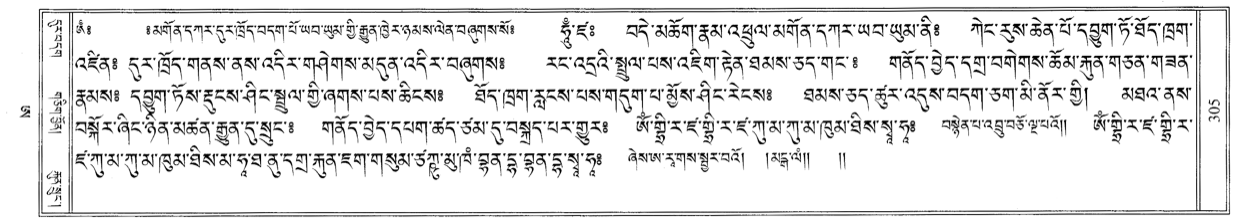 ༀ༔ ༔མགོན་དཀར་དུར་ཁྲོད་བདག་པོ་ཡབ་ཡུམ་གྱི་རྒྱུན་ཁྱེར་ཉམས་ལེན་བཞུགས་སོ༔ ཧཱུྃ་ཛ༔ བདེ་མཆོག་རྣམ་འཕྲུལ་མགོན་དཀར་ཡབ་ཡུམ་ནི༔ ཀེང་རུས་ཆེན་པོ་དབྱུག་ཏོ་ཐོད་ཁྲག་
འཛིན༔ དུར་ཁྲོད་གནས་ནས་འདིར་གཤེགས་མདུན་འདིར་བཞུགས༔ རང་འདྲའི་སྤྲུལ་པས་འཇིག་རྟེན་ཐམས་ཅད་གང་༔ གནོད་བྱེད་དགྲ་བགེགས་ཆོམ་རྐུན་གཅན་གཟན་
རྣམས༔ དབྱུག་ཏོས་རྡུངས་ཤིང་སྤྲུལ་གྱི་ཞགས་པས་ཆིངས༔ ཐོད་ཁྲག་རླངས་པས་གདུག་པ་མྱོས་ཤིང་རེངས༔ ཐམས་ཅད་ཚུར་འདུས་བདག་ཅག་མི་ནོར་གྱི། མཐའ་ནས་
བསྐོར་ཞིང་ཉིན་མཚན་རྒྱུན་དུ་སྲུང་༔ གནོད་བྱེད་དཔག་ཚད་ཙམ་དུ་བསྐྲད་པར་གྱུར༔ ༀ་ཤྲཱི་ར་ཛ་ཤྲཱི་ར་ཛ་ཀུ་མ་ཀུ་མ་ཁུམ་ཐིས་སྭཱ་ཧཱ༔ བསྙེན་པ་འབྲུ་བཅོ་ལྔ་པའོ།། ༀ་ཤྲཱི་ར་ཛ་ཤྲཱི་ར་
ཛ་ཀུ་མ་ཀུ་མ་ཁུམ་ཐིས་མ་ཧཱ་ཐ་ནུ་དགྲ་རྐུན་ཇག་གསུམ་ སྭཱ་ཧཱ༔ ཞེས་ཨ་རྭགས་སྦྱར་བའོ། །མངྒ་ལཾ།། །།
305